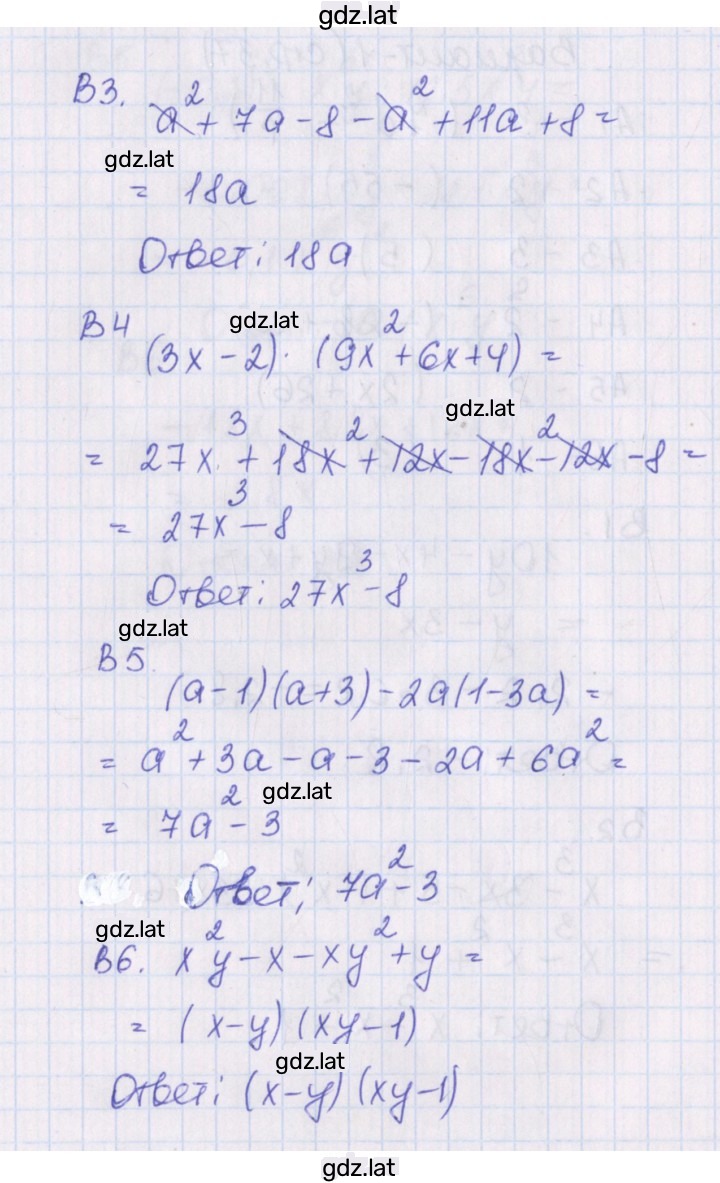 gdz.lat
В3. a² + 7a - 8 - a² + 11a + 8 =
gdz.lat
= 18a
Ответ: 18a
В4 gdz.lat
(3x - 2) · (9x² + 6x + 4) =
gdz.lat
= 27x³ + 18x² + 12x - 18x² - 12x - 8 =
= 27x³ - 8
Ответ: 27x³ - 8
gdz.lat
В5.
(a - 1)(a + 3) - 2a(1 - 3a) =
= a² + 3a - a - 3 - 2a + 6a² =
gdz.lat
= 7a² - 3
Ответ: 7a² - 3
gdz.lat
В6. x²y - x - xy² + y =
= (x - y)(xy - 1)
gdz.lat
Ответ: (x - y)(xy - 1)
gdz.lat